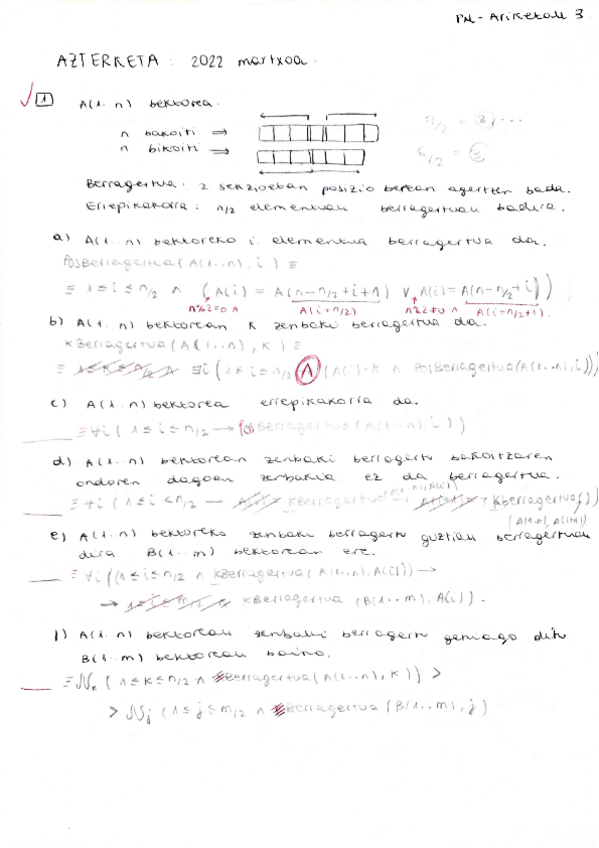 PM - Ariketak 3
AZTERKETA : 2022 martxoa.
1 A(1..n) bektorea.
n bakoiti ⇒
n bikoiti ⇒
5/2 = 2, ...
6/2 = 3
Berragertua : 2 sekzioetan posizio berean agertzen bada.
Errepikakorra : n/2 elementuak berragertuak badira.
a) A(1..n) bektoreko i. elementua berragertua da.
PosBerragertua (A(1..n), i) ≡
≡ 1 ≤ i ≤ n/2 ∧ (A(i) = A(n-n/2+i+1) ∨ A(i) = A(n-n/2+i))
n%2=0 ∧ A(i+n/2) n%2≠0 ∧ A(i+n/2+1).
b) A(1..n) bektorean K zenbaki berragertua da.
KBerragertua (A(1..n), K) ≡
≡ ∃i (1 ≤ i ≤ n/2 ∧ (A(i)=K ∧ PosBerragertua(A(1..n), i)))
c) A(1..n) bektorea errepikakorra da.
≡ ∀i (1 ≤ i ≤ n/2 → Berragertua (A(1..n), i))
d) A(1..n) bektorean zenbaki berragertu bakoitzaren
ondoren dagoen zenbakia ez da berragertua.
≡ ∀i (1 ≤ i < n/2 → KBerragertua → ¬KBerragertua( ))
(A(1..n), A(i+1))
e) A(1..n) bektoreko zenbaki berragertu guztiak berragertuak
dira B(1..m) bektorean ere.
≡ ∀i ((1 ≤ i ≤ n/2 ∧ KBerragertua (A(1..n), A(i))) →
→ KBerragertua (B(1..m), A(i)).
f) A(1..n) bektoreak zenbaki berragertu gehiago ditu
B(1..m) bektoreak baino.
≡ Nk (1 ≤ K ≤ n/2 ∧ Berragertua (A(1..n), K)) >
> Nj (1 ≤ j ≤ m/2 ∧ Berragertua (B(1..m), j)